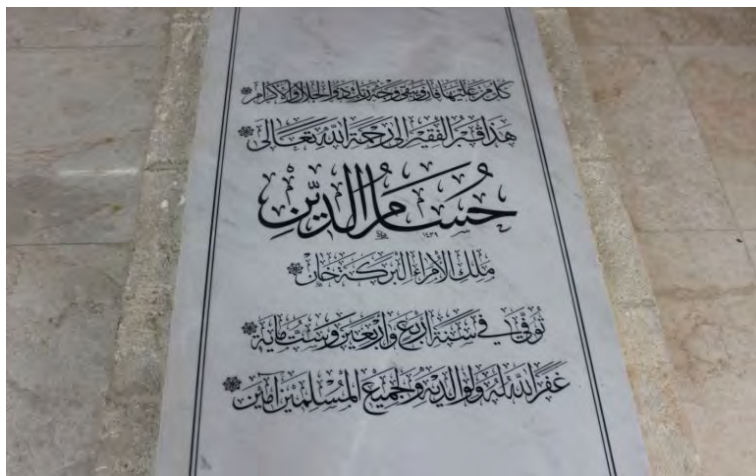 كل من عليها فان ويبقى وجه ربك ذو الجلال والإكرام
هذا قبر الفقير إلى رحمة الله تعالى
حُسَامُ الدِّينِ
١٤٣٩
ملك الأمراء البركة خان
تُوُفِّيَ في سنة أربع وأربعين وست ماية
غفر الله له ولوالديه ولجميع المسلمين آمين